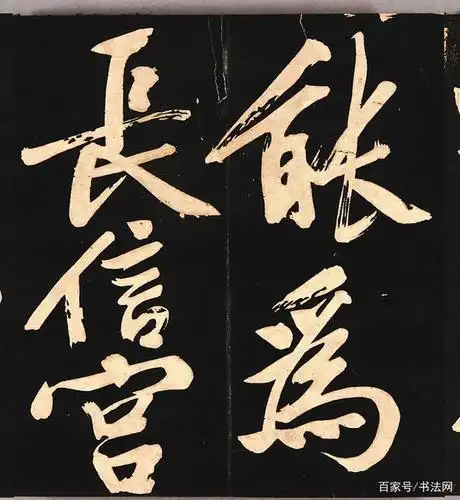 能為
長信宮
百家号/书法网